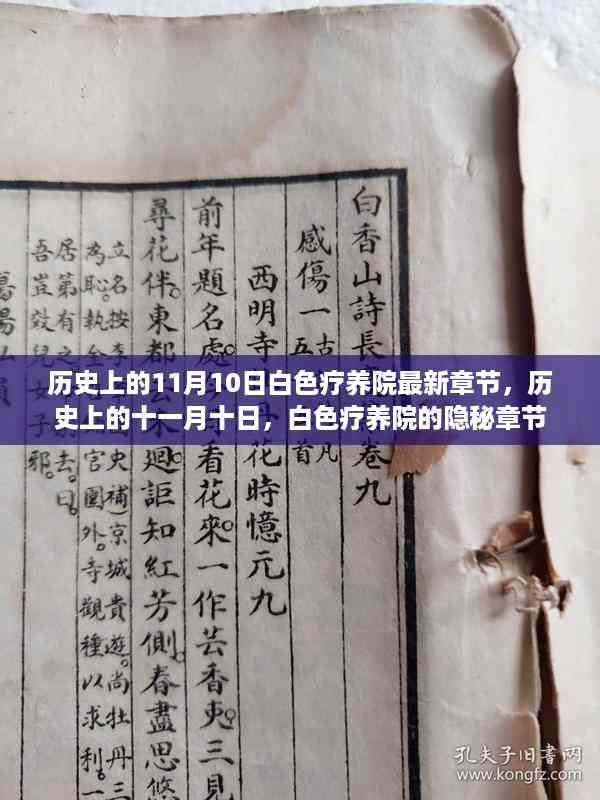 白香山詩長卷九
感傷一 古凡
五首
西明寺丹花時憶元九
前年題名處。看花來。一作芸香吏。三見
尋花伴。東都未迴。詎知紅芳側。春盡思悠
立名按李史補)京城貴遊。尚牡丹三
為恥。執金官圍外。寺觀種以求利。一
居第有之去。曰
吾豈效兒女子邪。
历史上的11月10日白色疗养院最新章节，历
史上的十一月十日，白色疗养院的隐秘章节
孔夫子旧书网
www.kongfz.com